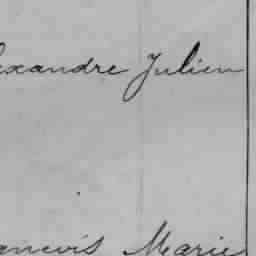 exandre Julien
ancois Marie